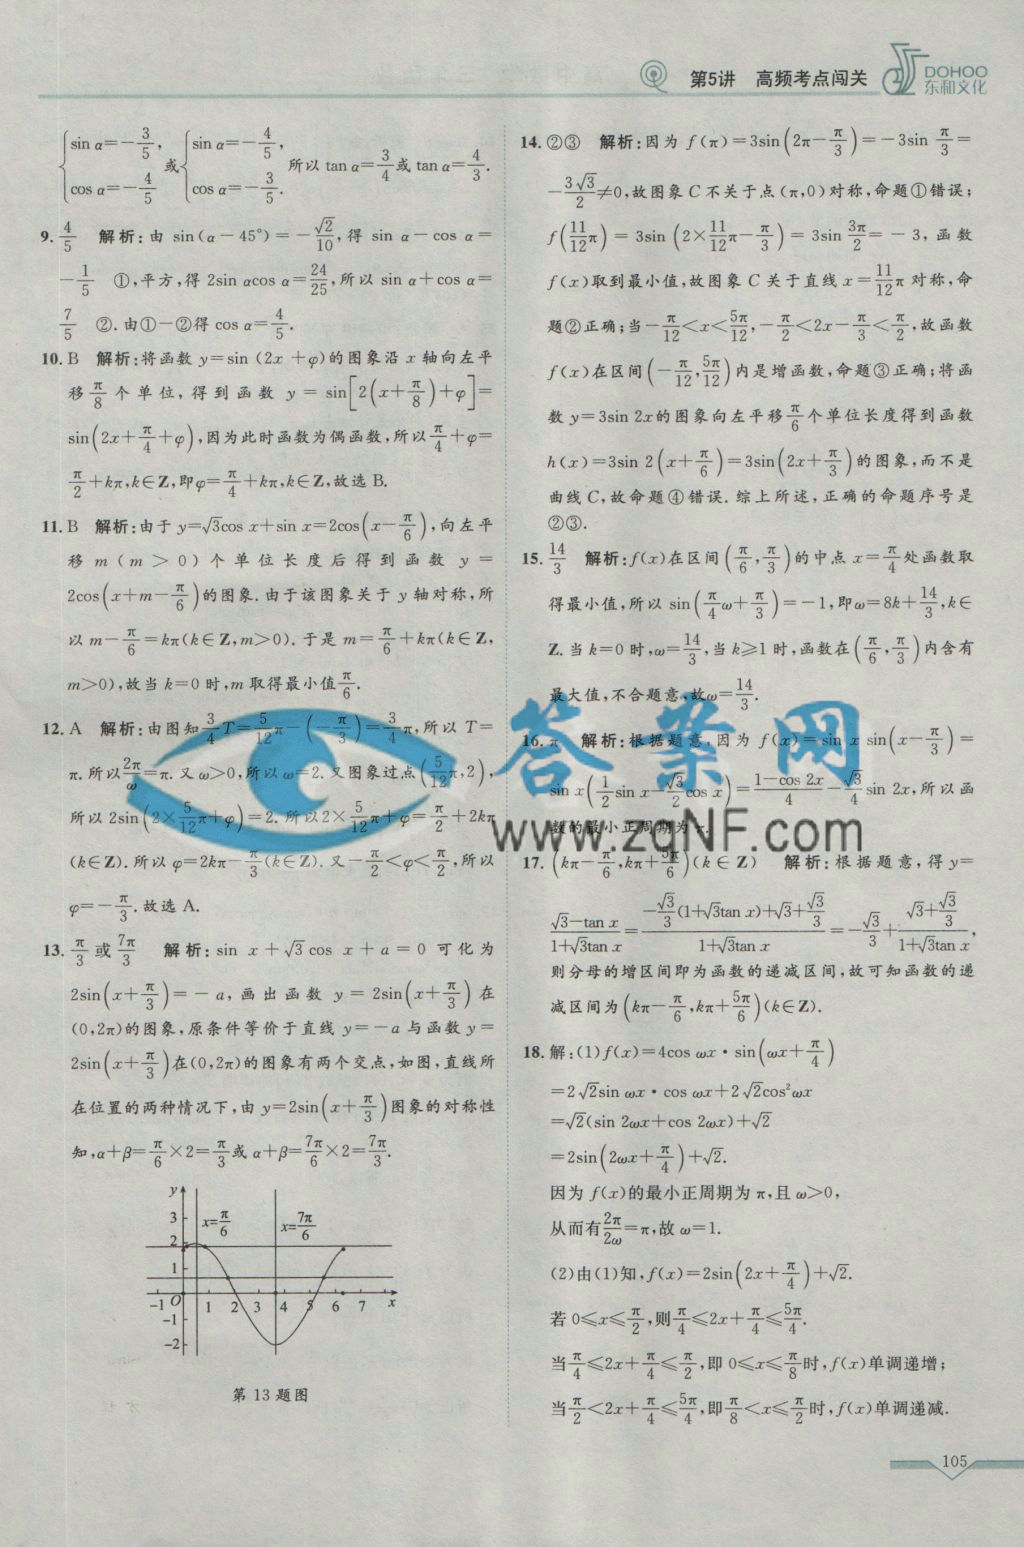 第5讲 高频考点闯关
DOHOO
东和文化
{sin α=-3/5, cos α=-4/5 或 {sin α=-4/5, cos α=-3/5. 所以 tan α=3/4或 tan α=4/3.
9. 4/5 解析:由 sin(α-45°)=-√2/10,得 sin α-cos α=
-1/5 ①,平方,得 2sin αcos α=24/25,所以 sin α+cos α=
7/5 ②.由①-②得 cos α=4/5.
10. B 解析:将函数 y=sin (2x+φ)的图象沿 x 轴向左平
移π/8个单位,得到函数 y=sin[2(x+π/8)+φ]=
sin(2x+π/4+φ),因为此时函数为偶函数,所以π/4+φ=
π/2+kπ,k∈Z,即φ=π/4+kπ,k∈Z,故选 B.
11. B 解析:由于 y=√3cos x+sin x=2cos(x-π/6),向左平
移 m(m>0)个单位长度后得到函数 y=
2cos(x+m-π/6)的图象.由于该图象关于 y 轴对称,所
以 m-π/6=kπ(k∈Z,m>0).于是 m=π/6+kπ(k∈Z,
m>0),故当 k=0 时,m 取得最小值π/6.
12. A 解析:由图知3/4T=5/12π-(-π/3)=3/4π,所以 T=
π.所以2π/ω=π.又 ω>0,所以 ω=2.又图象过点(5/12π,2),
所以 2sin(2×5/12π+φ)=2.所以2×5/12π+φ=π/2+2kπ
(k∈Z).所以 φ=2kπ-π/3(k∈Z).又-π/2<φ<π/2,所以
φ=-π/3.故选 A.
13. π/3或7π/3 解析:sin x+√3cos x+a=0 可化为
2sin(x+π/3)=-a,画出函数 y=2sin(x+π/3)在
(0,2π)的图象,原条件等价于直线 y=-a 与函数 y=
2sin(x+π/3)在(0,2π)的图象有两个交点,如图,直线所
在位置的两种情况下,由 y=2sin(x+π/3)图象的对称性
知,α+β=π/6×2=π/3或 α+β=7π/6×2=7π/3.
y
3
2
1
-1
-2
x=π/6
x=7π/6
-1 O 1 2 3 4 5 6 7 x
第 13 题图
14. ②③ 解析:因为 f(π)=3sin(2π-π/3)=-3sin π/3=
-3√3/2≠0,故图象 C 不关于点(π,0)对称,命题①错误;
f(11/12π)=3sin(2×11/12π-π/3)=3sin 3π/2=-3,函数
f(x)取到最小值,故图象 C 关于直线 x=11/12π 对称,命
题②正确;当-π/12<x<5π/12,-π/2<2x-π/3<π/2,故函数
f(x)在区间(-π/12,5π/12)内是增函数,命题③正确;将函
数 y=3sin 2x的图象向左平移π/6个单位长度得到函数
h(x)=3sin 2(x+π/6)=3sin(2x+π/3)的图象,而不是
曲线 C,故命题④错误.综上所述,正确的命题序号是
②③.
15. 14/3 解析:f(x)在区间(π/6,π/3)的中点 x=π/4处函数取
得最小值,所以 sin(π/4ω+π/3)=-1,即ω=8k+14/3,k∈
Z.当 k=0 时,ω=14/3,当 k≥1 时,函数在(π/6,π/3)内含有
最大值,不合题意,故ω=14/3.
16. π 解析:根据题意,因为 f(x)=sin x sin(x-π/3)=
sin x(1/2sin x-√3/2cos x)=1-cos 2x/4-√3/4sin 2x,所以函
数的最小正周期为 π.
17. (kπ-π/6,kπ+5π/6)(k∈Z) 解析:根据题意,得 y=
√3-tan x/1+√3tan x=-√3/3(1+√3tan x)+√3+√3/3/1+√3tan x=-√3/3+√3+√3/3/1+√3tan x,
则分母的增区间即为函数的递减区间,故可知函数的递
减区间为(kπ-π/6,kπ+5π/6)(k∈Z).
18. 解:(1)f(x)=4cos ωx·sin(ωx+π/4)
=2√2sin ωx·cos ωx+2√2cos²ωx
=√2(sin 2ωx+cos 2ωx)+√2
=2sin(2ωx+π/4)+√2.
因为 f(x)的最小正周期为 π,且 ω>0,
从而有2π/2ω=π,故 ω=1.
(2)由(1)知,f(x)=2sin(2x+π/4)+√2.
若 0≤x≤π/2,则π/4≤2x+π/4≤5π/4.
当π/4≤2x+π/4≤π/2,即 0≤x≤π/8时,f(x)单调递增;
当π/2<2x+π/4≤5π/4,即π/8<x≤π/2时,f(x)单调递减.
答案网
www.zqNF.com
105